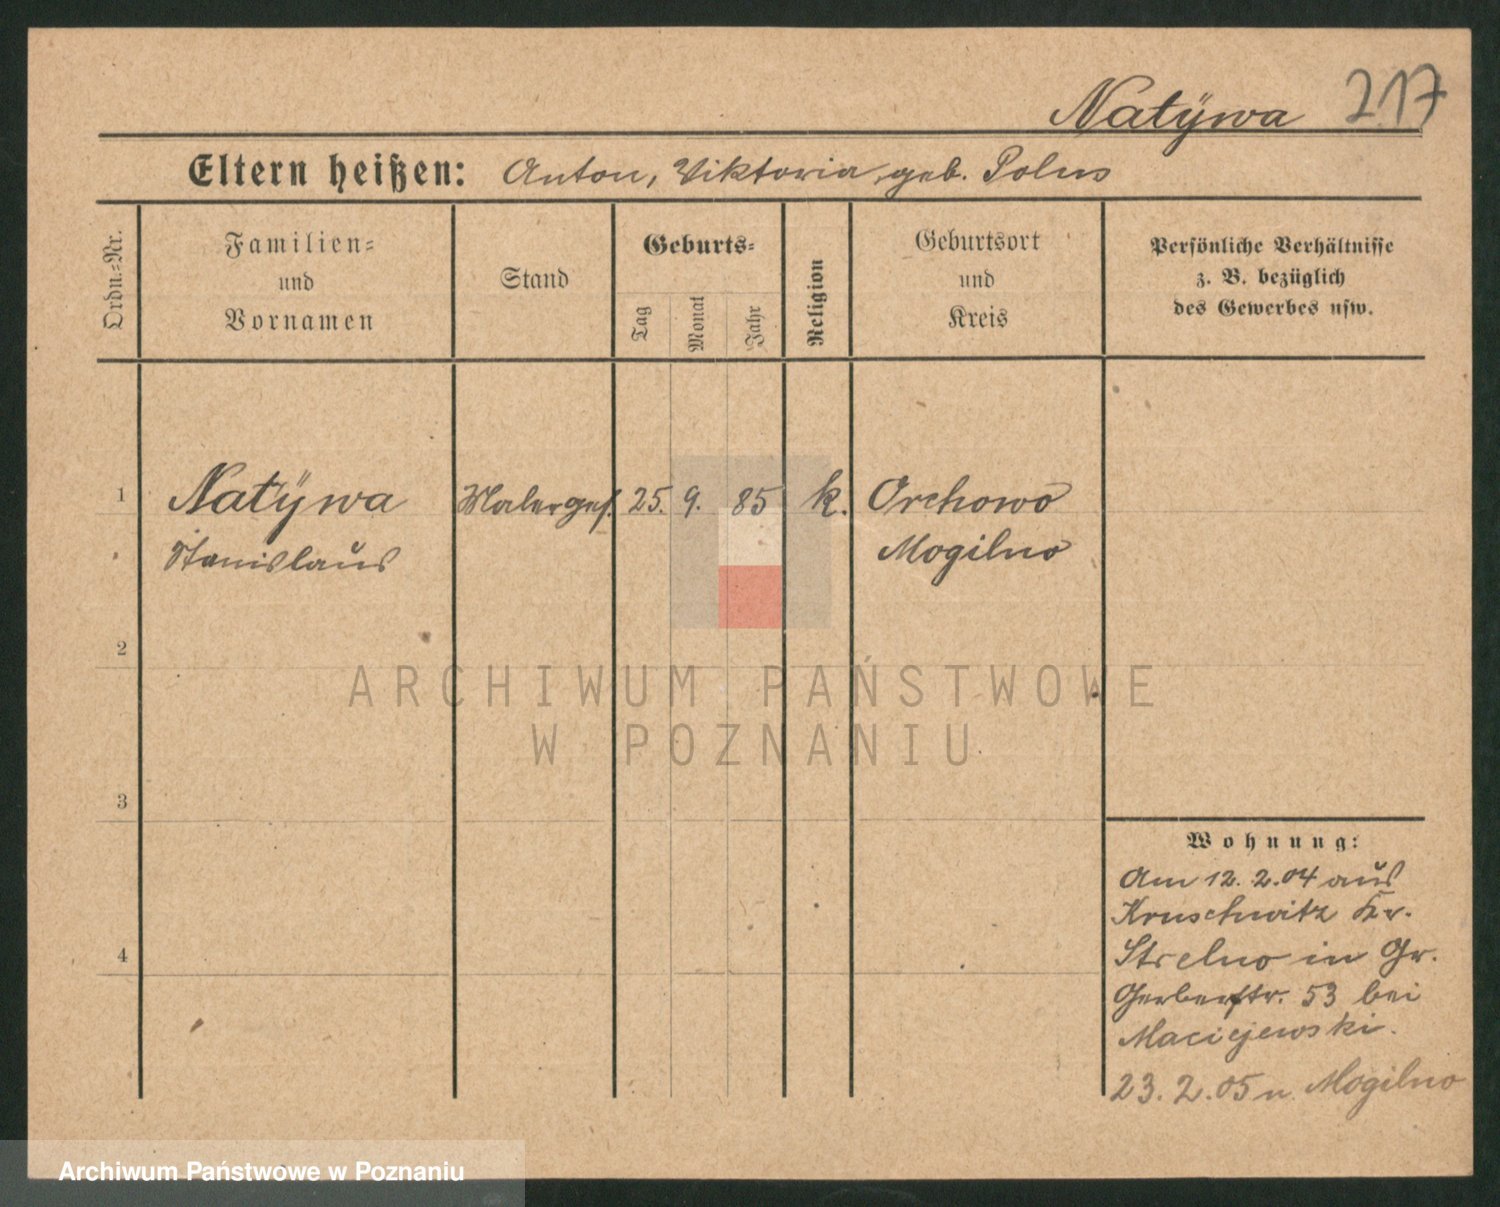 Natÿwa 217
Eltern heißen: Anton, Viktoria, geb. Polus
Ordn.=Nr.
Familien=
und
Vornamen
Stand
Geburts=
Tag
Monat
Jahr
Religion
Geburtsort
und
Kreis
Persönliche Verhältnisse
z. B. bezüglich
des Gewerbes usw.
1 Natÿwa Malerges. 25. 9. 85 k. Orchowo
Stanislaus Mogilno
2
3
4
Wohnung:
Am 12. 2. 04 aus
Kruschwitz Kr.
Strelno in Gr.
Gerberstr. 53 bei
Maciejewski.
23. 2. 05 n. Mogilno
ARCHIWUM PAŃSTWOWE
W POZNANIU
Archiwum Państwowe w Poznaniu